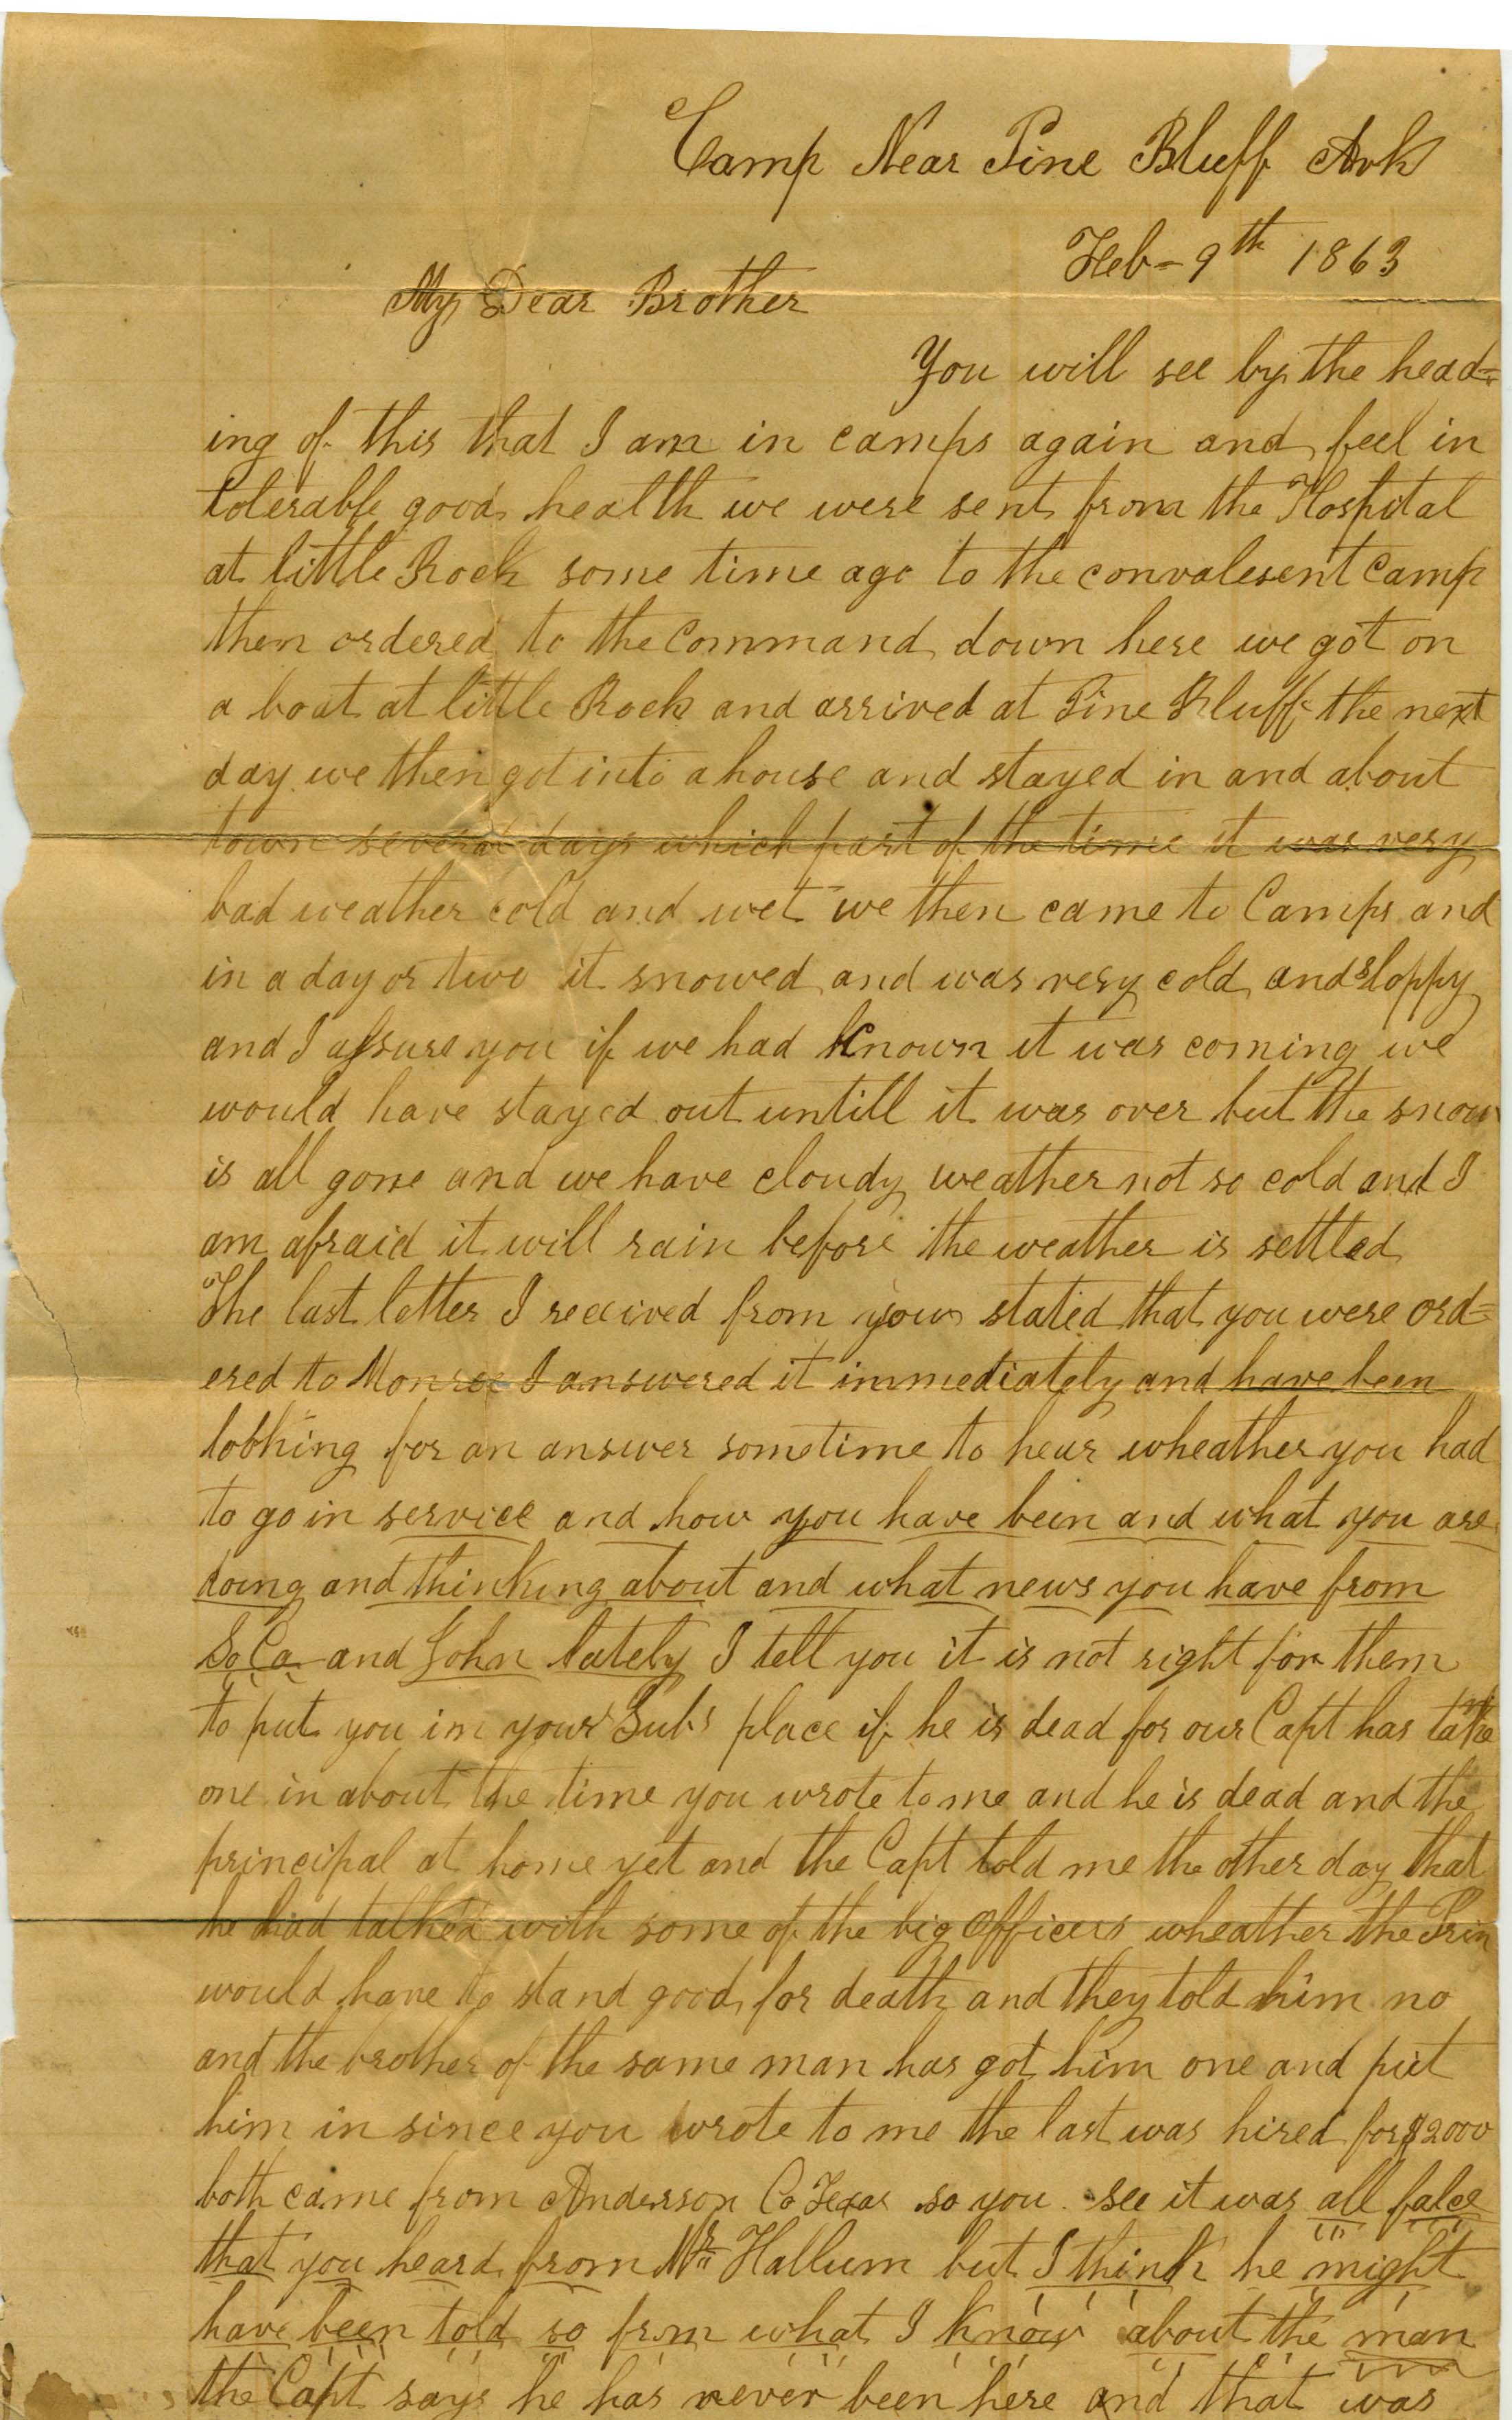 Camp Near Pine Bluff Ark
Feb- 9th 1863
My Dear Brother
You will see by the head=
ing of this that I am in camps again and feel in
tolerable good health we were sent from the Hospital
at little Rock some time ago to the convalesent Camp
then ordered to the Command down here we got on
a boat at little Rock and arrived at Pine Bluff the next
day we then got into a house and stayed in and about
town several days which part of the time it was very
bad weather cold and wet we then came to Camps and
in a day or two it snowed and was very cold and sloppy
and I assure you if we had Known it was coming we
would have stayed out untill it was over but the snow
is all gone and we have cloudy weather not so cold and I
am afraid it will rain before the weather is settled
The last letter I received from you stated that you were ord=
ered to Monroe I answered it immediately and have been
looking for an answer sometime to hear wheather you had
to go in service and how you have bein and what you are
doing and thinking about and what news you have from
So Ca and John lately I tell you it is not right for them
to put you in your Subs place if he is dead for our Capt has taken
one in about the time you wrote to me and he is dead and the
principal at home yet and the Capt told me the other day that
he had talked with some of the big Officers wheather the Prin
would have to stand good for death and they told him no
and the brother of the same man has got him one and put
him in since you wrote to me the last was hired for $2000
both came from Anderson Co Texas so you see it was all falce
that you heard from Mr Hallum but I think he might
have been told so from what I know about the man
the Capt says he has never been here and that was